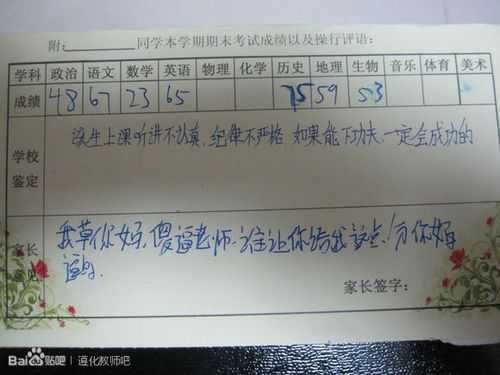 附:________同学本学期期末考试成绩以及操行评语:
学科 政治 语文 数学 英语 物理 化学 历史 地理 生物 音乐 体育 美术
成绩 48 67 23 65 75 59 53
学校鉴定 该生上课听讲不认真,纪律不严格 如果能下功夫,一定会成功的
家长意见 我草你妈,傻逼老师,谁让你给我这点分 你妈
逼的.
家长签字:
Bai du 贴吧 | 遵化教师吧